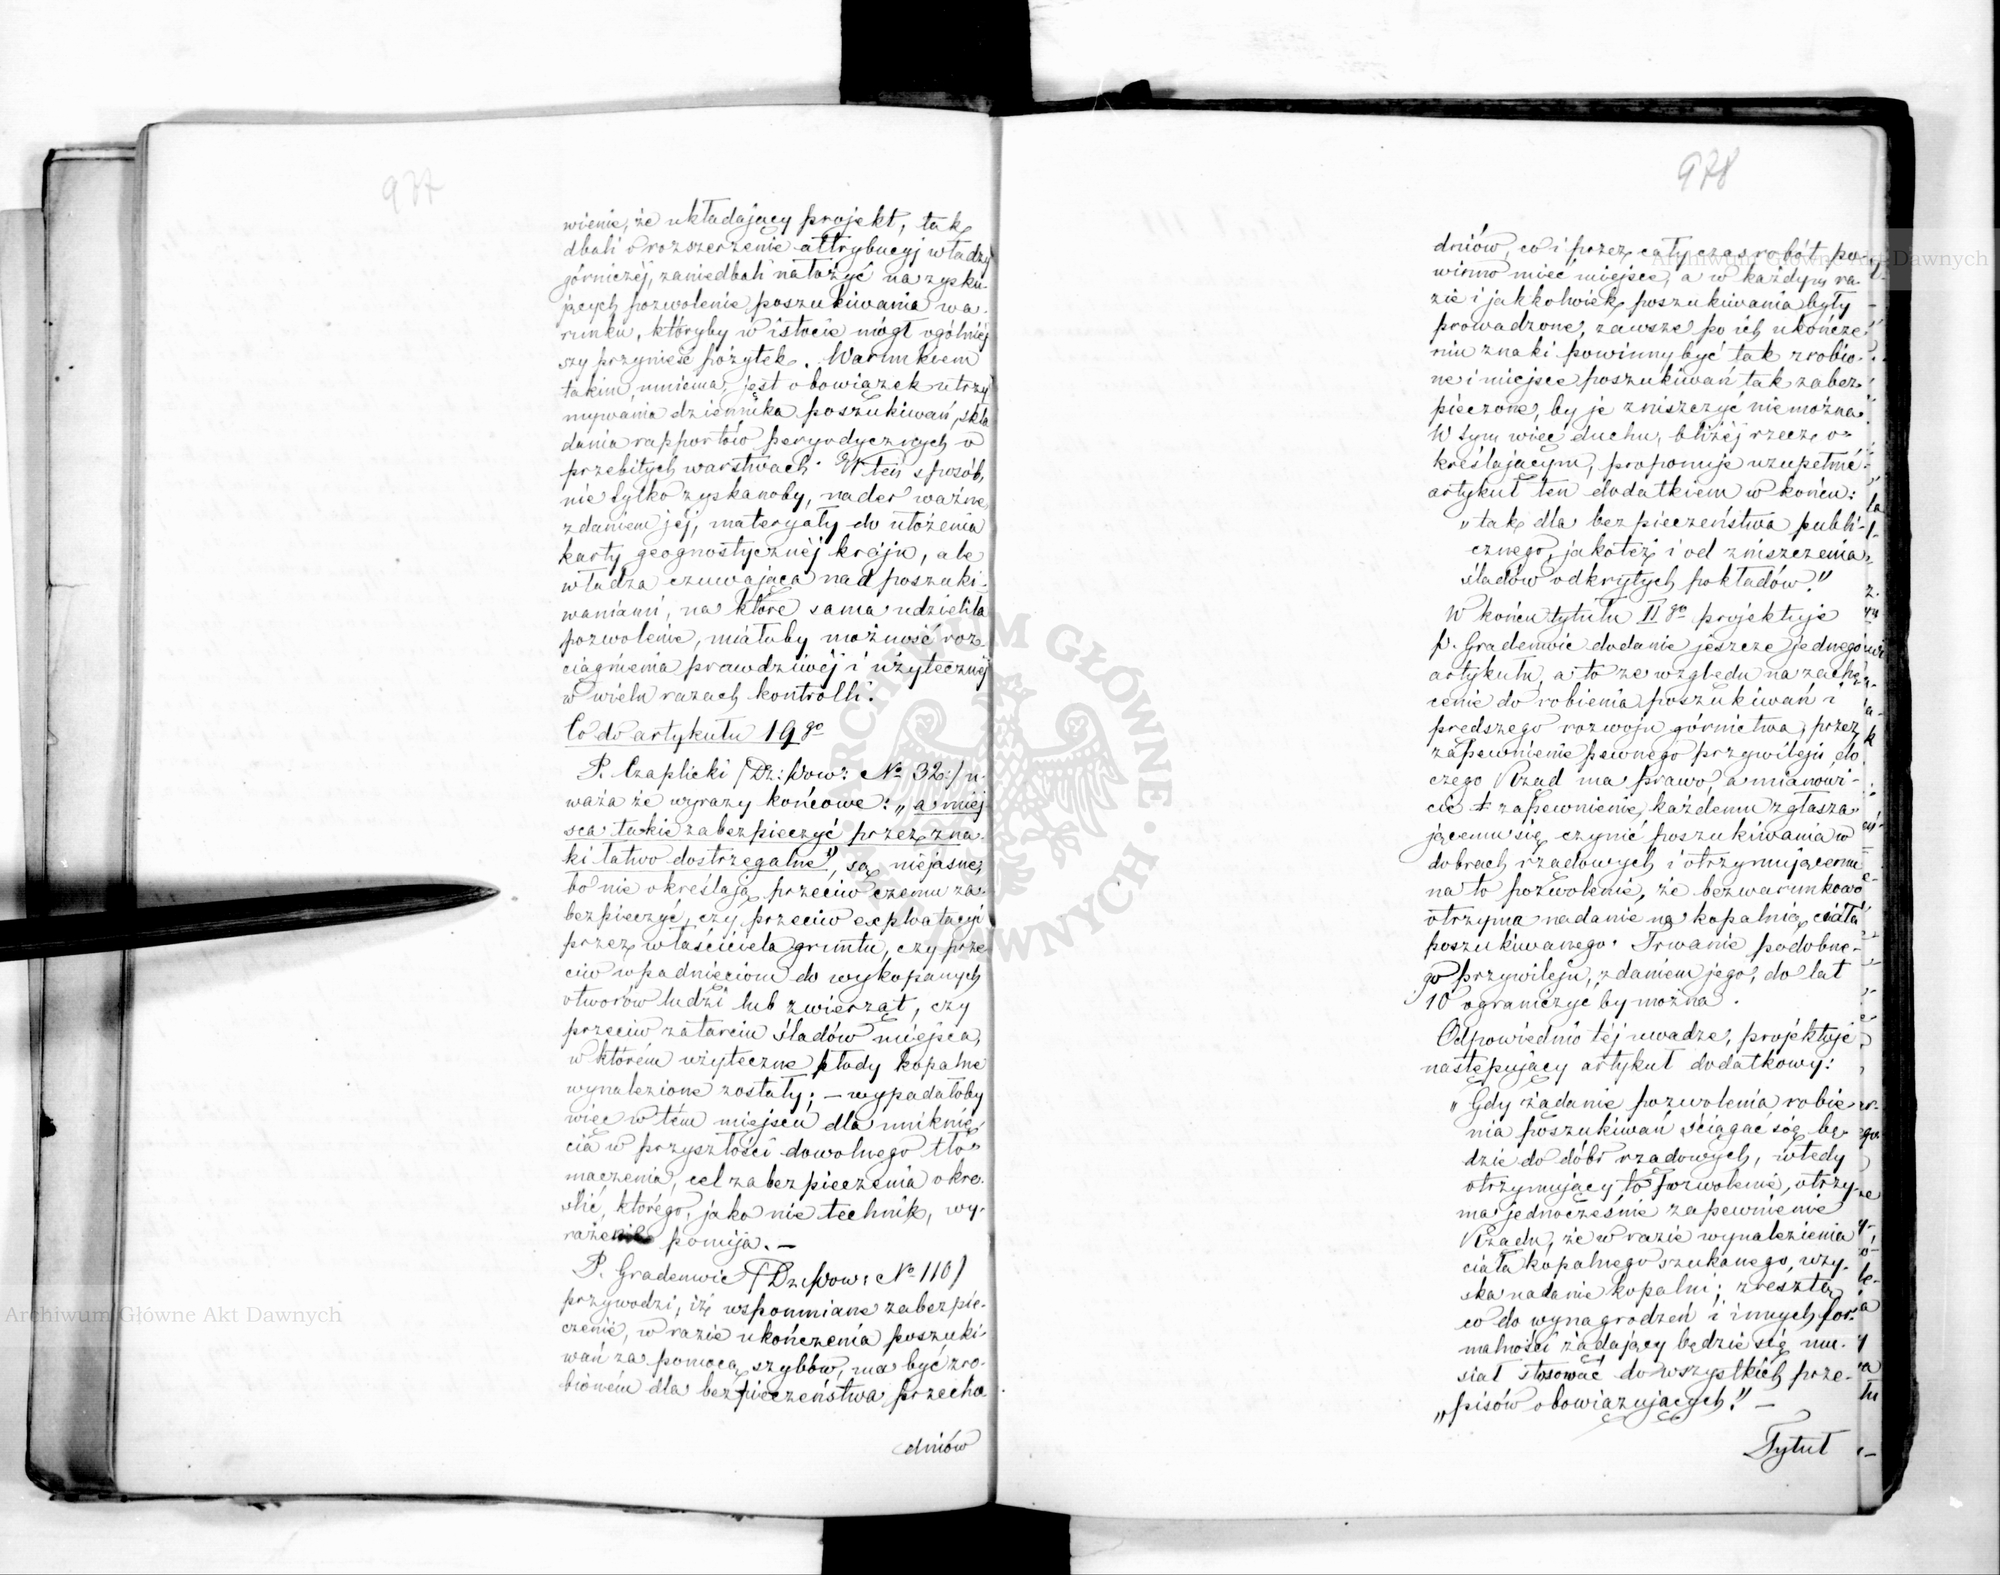 977
wienie, że układający projekt, tak
dbali o rozszerzenie attrybucyj władzy
górniczéj, zaniedbali nałożyć na zysku-
jących pozwolenie poszukiwania wa-
runku, któryby w istocie mógł ogólniej
szy przynieść pożytek. Warunkiem
takim, mniema, jest obowiązek utrzy
mywania dziennika poszukiwań, skła
dania rapportów peryodycznych o
przebitych warstwach. W ten sposób,
nie tylko zyskanoby, nader ważne,
zdaniem jéj, materyały do ułożenia
karty geognostycznéj kraju, ale
władza czuwająca nad poszuki-
waniami, na które sama udzieliła
pozwolenie, miałaby możność roz-
ciągnienia prawdziwéj i użytecznéj
w wielu razach kontrolli.
Co do artykułu 19go
P. Czaplicki /Dz: pow: No 32:/ u-
waża że wyrazy końcowe: „a miej
sca takie zabezpieczyć przez zna-
ki łatwo dostrzegalne", są niejasne,
bo nie określają przeciw czemu za-
bezpieczyć, czy przeciw exploatacyi
przez właściciela gruntu, czy prze-
ciw wpadnięciom do wykopanych
otworów ludzi lub zwierząt, czy
przeciw zatarciu śladów miejsca,
w którém użyteczne płody kopalne
wynalezione zostały; — wypadałoby
więc w tém miejscu dla uniknię-
cia w przyszłości dowolnego tło-
maczenia, cel zabezpieczenia okre-
ślić, którego, jako nie technik, wy-
rażenie pomija. —
P. Gradenwic /Dz: pow: No 110/
przywodzi, iż wspomniane zabezpie-
czenie, w razie ukończenia poszuki-
wań za pomocą szybów, ma być zro-
bioném dla bezpieczeństwa przecho-
dniów
978
dniów, co i przez cały czas robót po-
winno mieć miejsce, a w każdym ra-
zie i jakkolwiek poszukiwania były
prowadzone, zawsze po ich ukończe-
niu znaki powinny być tak zrobio-
ne i miejsce poszukiwań tak zabez-
pieczone, by je zniszczyć nie można.
W tym więc duchu, bliżéj rzecz o-
kreślającym, proponuje uzupełnić
artykuł ten dodatkiem w końcu:
„tak dla bezpieczeństwa publi-
cznego, jakoteż i od zniszczenia
śladów odkrytych pokładów."
W końcu tytułu II go projektuje
P. Gradenwic dodanie jeszcze jednego
artykułu, a to ze względu na zachę-
cenie do robienia poszukiwań i
prędszego rozwoju górnictwa, przez
zapewnienie pewnego przywileju, do
czego Rząd ma prawo, a mianowi-
cie zapewnienie, każdemu zgłasza-
jącemu się czynić poszukiwania w
dobrach rządowych i otrzymującemu
na to pozwolenie, że bezwarunkowo
otrzyma nadanie na kopalnię ciała
poszukiwanego. Trwanie podobne-
go przywileju, zdaniem jego, do lat
10 ograniczyćby można.
Odpowiednio téj uwadze, projektuje
następujący artykuł dodatkowy:
„Gdy żądanie pozwolenia robie-
nia poszukiwań ściągać się bę-
dzie do dóbr rządowych, wtedy
otrzymujący to pozwolenie, otrzy-
ma jednocześnie zapewnienie
Rządu, że w razie wynalezienia
ciała kopalnego szukanego, uzy-
ska nadanie kopalni; zresztą
co do wynagrodzeń i innych for-
malności żądający będzie się mu-
siał stosować do wszystkich prze-
„pisów obowiązujących." —
Tytuł
Archiwum Główne Akt Dawnych
Archiwum Główne Akt Dawnych
ARCHIWUM GŁÓWNE